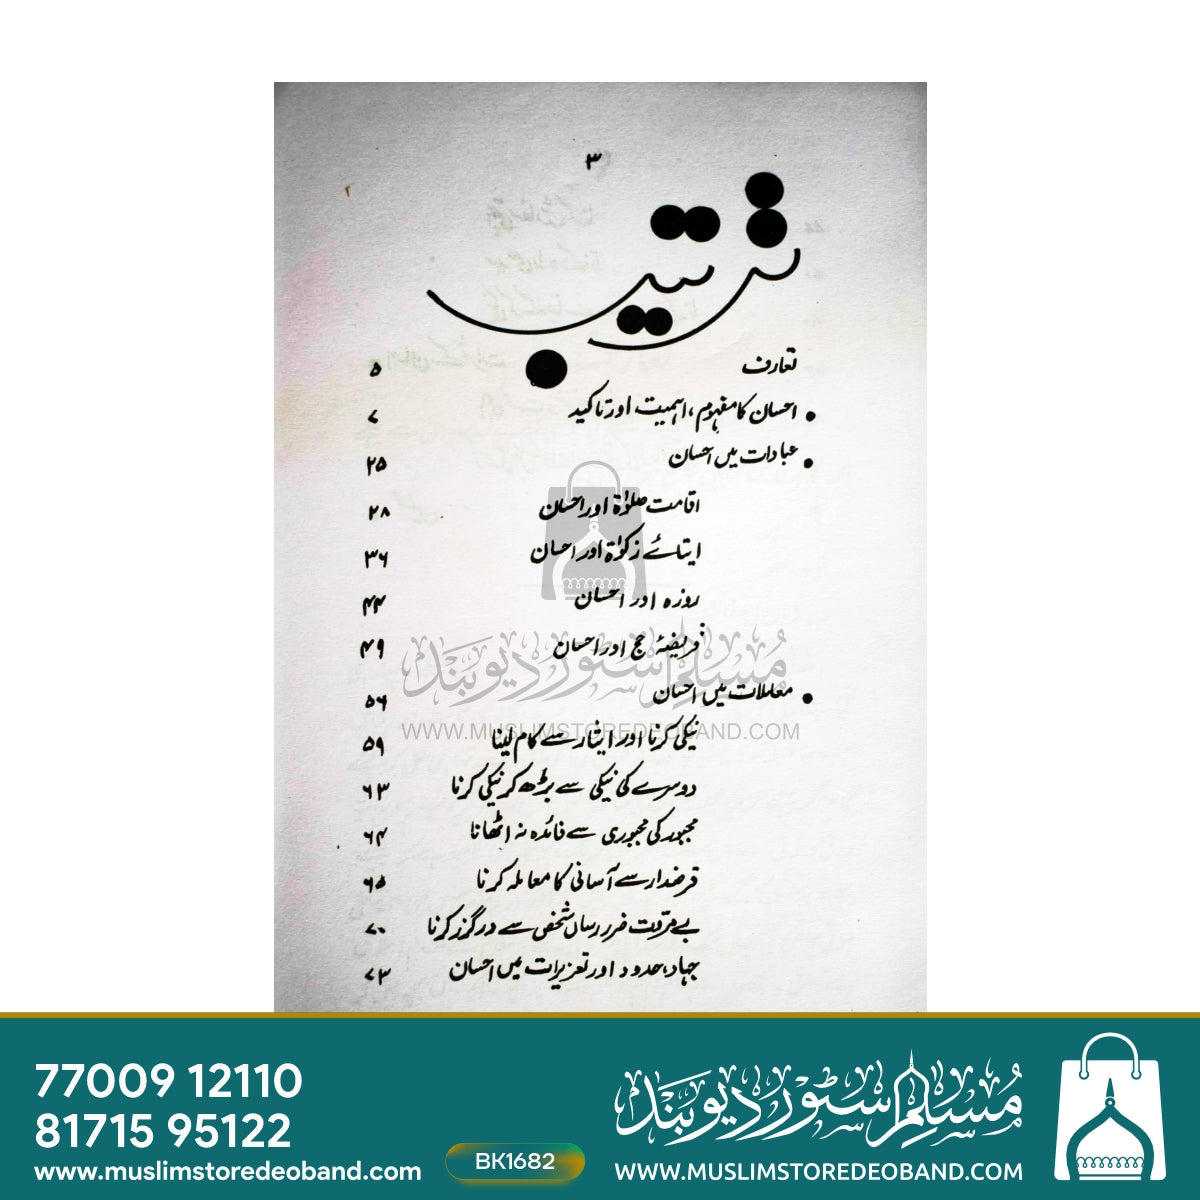 ۳
ترتیب
تعارف ۵
• احسان کا مفہوم، اہمیت اور تاکید ۷
• عبادات میں احسان ۲۵
اقامت صلوٰۃ اور احسان ۲۸
ایتائے زکوٰۃ اور احسان ۳۶
روزہ اور احسان ۴۴
فریضۂ حج اور احسان ۴۹
• معاملات میں احسان ۵۶
نیکی کرنا اور ایثار سے کام لینا ۵۹
دوسرے کی نیکی سے بڑھ کر نیکی کرنا ۶۳
مجبور کی مجبوری سے فائدہ نہ اٹھانا ۶۴
قرضدار سے آسانی کا معاملہ کرنا ۶۵
بے مروت ضرر رساں شخص سے درگزر کرنا ۷۰
جہاد، حدود اور تعزیرات میں احسان ۷۳
مسلم سٹور دیوبند
WWW.MUSLIMSTOREDEOBAND.COM
77009 12110
81715 95122
www.muslimstoredeoband.com
BK1682
مسلم سٹور دیوبند
WWW.MUSLIMSTOREDEOBAND.COM